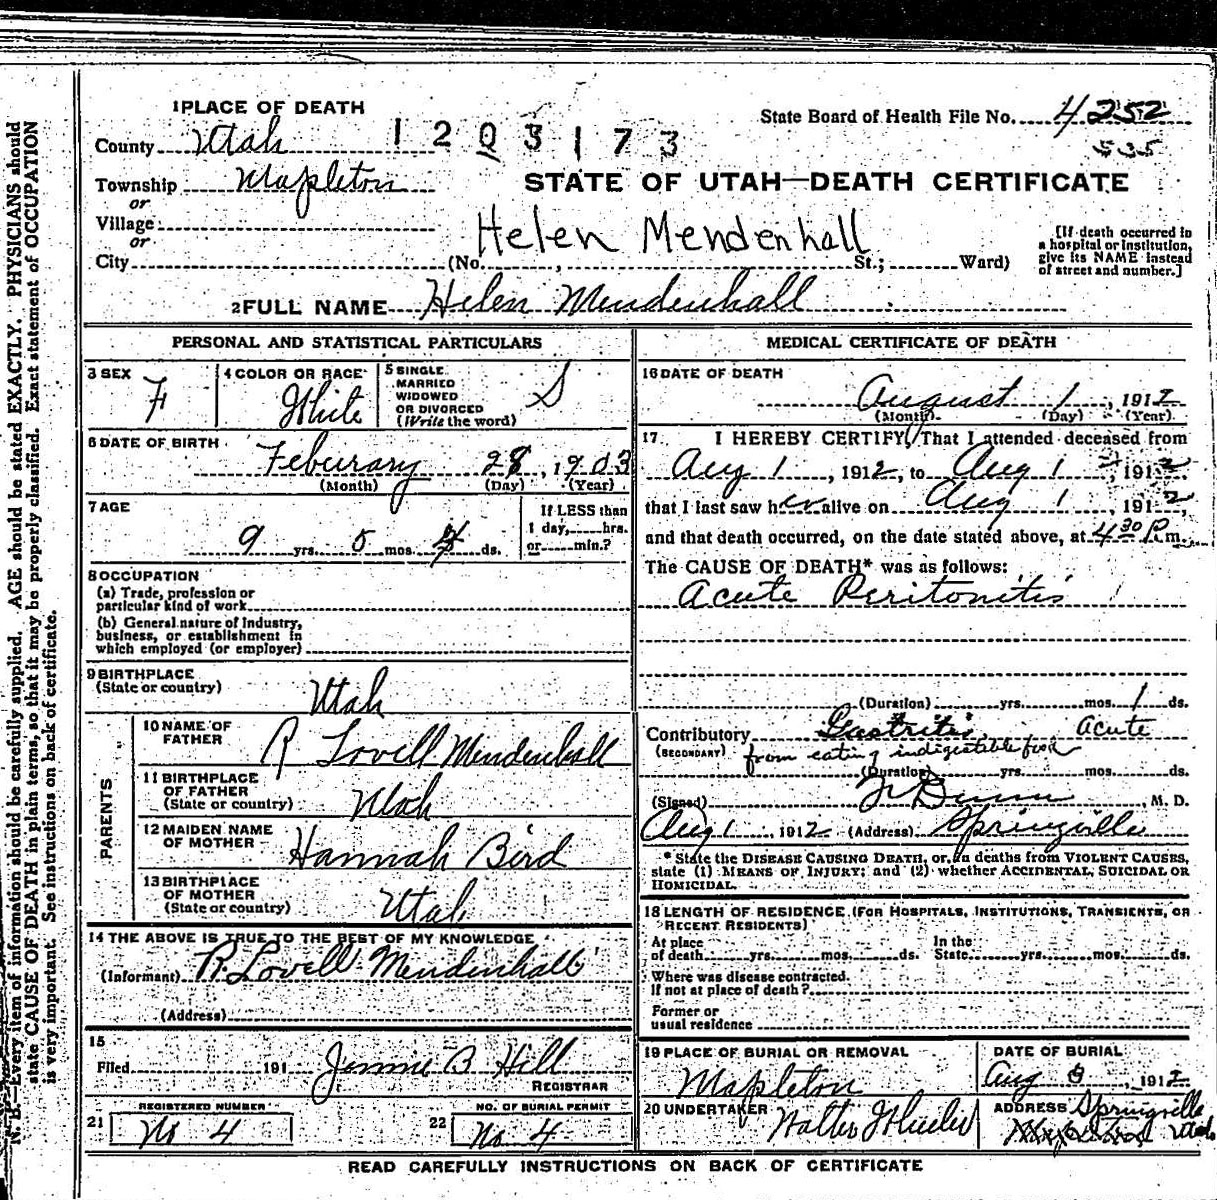 1 PLACE OF DEATH
State Board of Health File No. 4252
County Utah
1203173
535
Township Mapleton
STATE OF UTAH—DEATH CERTIFICATE
or
Village
or
Helen Mendenhall
City (No. , St.; Ward)
[If death occurred in
a hospital or institution,
give its NAME instead
of street and number.]
2 FULL NAME Helen Mendenhall
PERSONAL AND STATISTICAL PARTICULARS
3 SEX F
4 COLOR OR RACE White
5 SINGLE
MARRIED
WIDOWED
OR DIVORCED
(Write the word) S
6 DATE OF BIRTH
Feburary 28, 1903
(Month) (Day) (Year)
7 AGE
9 yrs. 5 mos. 4 ds.
If LESS than
1 day, hrs.
or min.?
8 OCCUPATION
(a) Trade, profession or
particular kind of work
(b) General nature of Industry,
business, or establishment in
which employed (or employer)
9 BIRTHPLACE
(State or country) Utah
PARENTS
10 NAME OF
FATHER R Lovell Mendenhall
11 BIRTHPLACE
OF FATHER
(State or country) Utah
12 MAIDEN NAME
OF MOTHER Hannah Bird
13 BIRTHPLACE
OF MOTHER
(State or country) Utah
14 THE ABOVE IS TRUE TO THE BEST OF MY KNOWLEDGE
(Informant) R. Lovell Mendenhall
(Address)
15
Filed 191 Jennie B Hill
REGISTRAR
REGISTERED NUMBER
21 No 4
NO. OF BURIAL PERMIT
22 No. 4
MEDICAL CERTIFICATE OF DEATH
16 DATE OF DEATH
August 1, 1912
(Month) (Day) (Year)
17 I HEREBY CERTIFY, That I attended deceased from
Aug 1, 1912, to Aug 1, 1912
that I last saw her alive on Aug 1, 1912,
and that death occurred, on the date stated above, at 4 30 P.m.
The CAUSE OF DEATH* was as follows:
Acute Peritonitis
(Duration) yrs. mos. 1 ds.
Contributory Gastritis, Acute
(SECONDARY) from eating indigestable food
(Duration) yrs. mos. ds.
(Signed) Dunn, M. D.
Aug 1, 1912 (Address) Springville
* State the DISEASE CAUSING DEATH, or, in deaths from VIOLENT CAUSES,
state (1) MEANS OF INJURY; and (2) whether ACCIDENTAL, SUICIDAL OR
HOMICIDAL.
18 LENGTH OF RESIDENCE (FOR HOSPITALS, INSTITUTIONS, TRANSIENTS, OR
RECENT RESIDENTS)
At place
of death yrs. mos. ds.
In the
State yrs. mos. ds.
Where was disease contracted.
If not at place of death?
Former or
usual residence
19 PLACE OF BURIAL OR REMOVAL
Mapleton
DATE OF BURIAL
Aug , 1912
20 UNDERTAKER Walter Wheeler
ADDRESS Springville
Utah
READ CAREFULLY INSTRUCTIONS ON BACK OF CERTIFICATE
N. B.—Every item of information should be carefully supplied. AGE should be stated EXACTLY. PHYSICIANS should
state CAUSE OF DEATH in plain terms, so that it may be properly classified. Exact statement of OCCUPATION
is very important. See instructions on back of certificate.